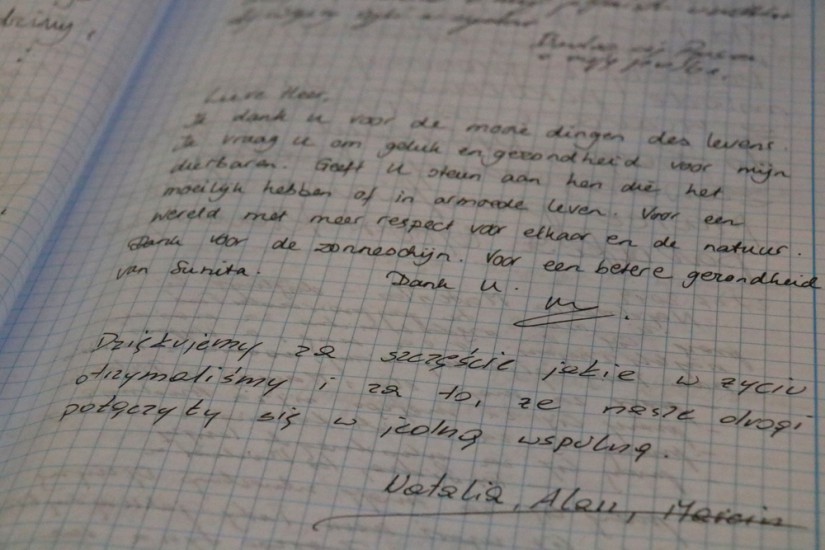 Lieve Heer,
Ik dank u voor de mooie dingen des levens.
Ik vraag u om geluk en gezondheid voor mijn
dierbaren. Geeft u steun aan hen die het
moeilijk hebben of in armoede leven. Voor een
wereld met meer respect voor elkaar en de natuur.
Dank voor de zonneschijn. Voor een betere gezondheid
van Sunita. Dank u.
Dziękujemy za szczęście jakie w życiu
otrzymaliśmy i za to, że nasze drogi
połączyły się w jedną wspulną.
Natalia, Alan, Marcin